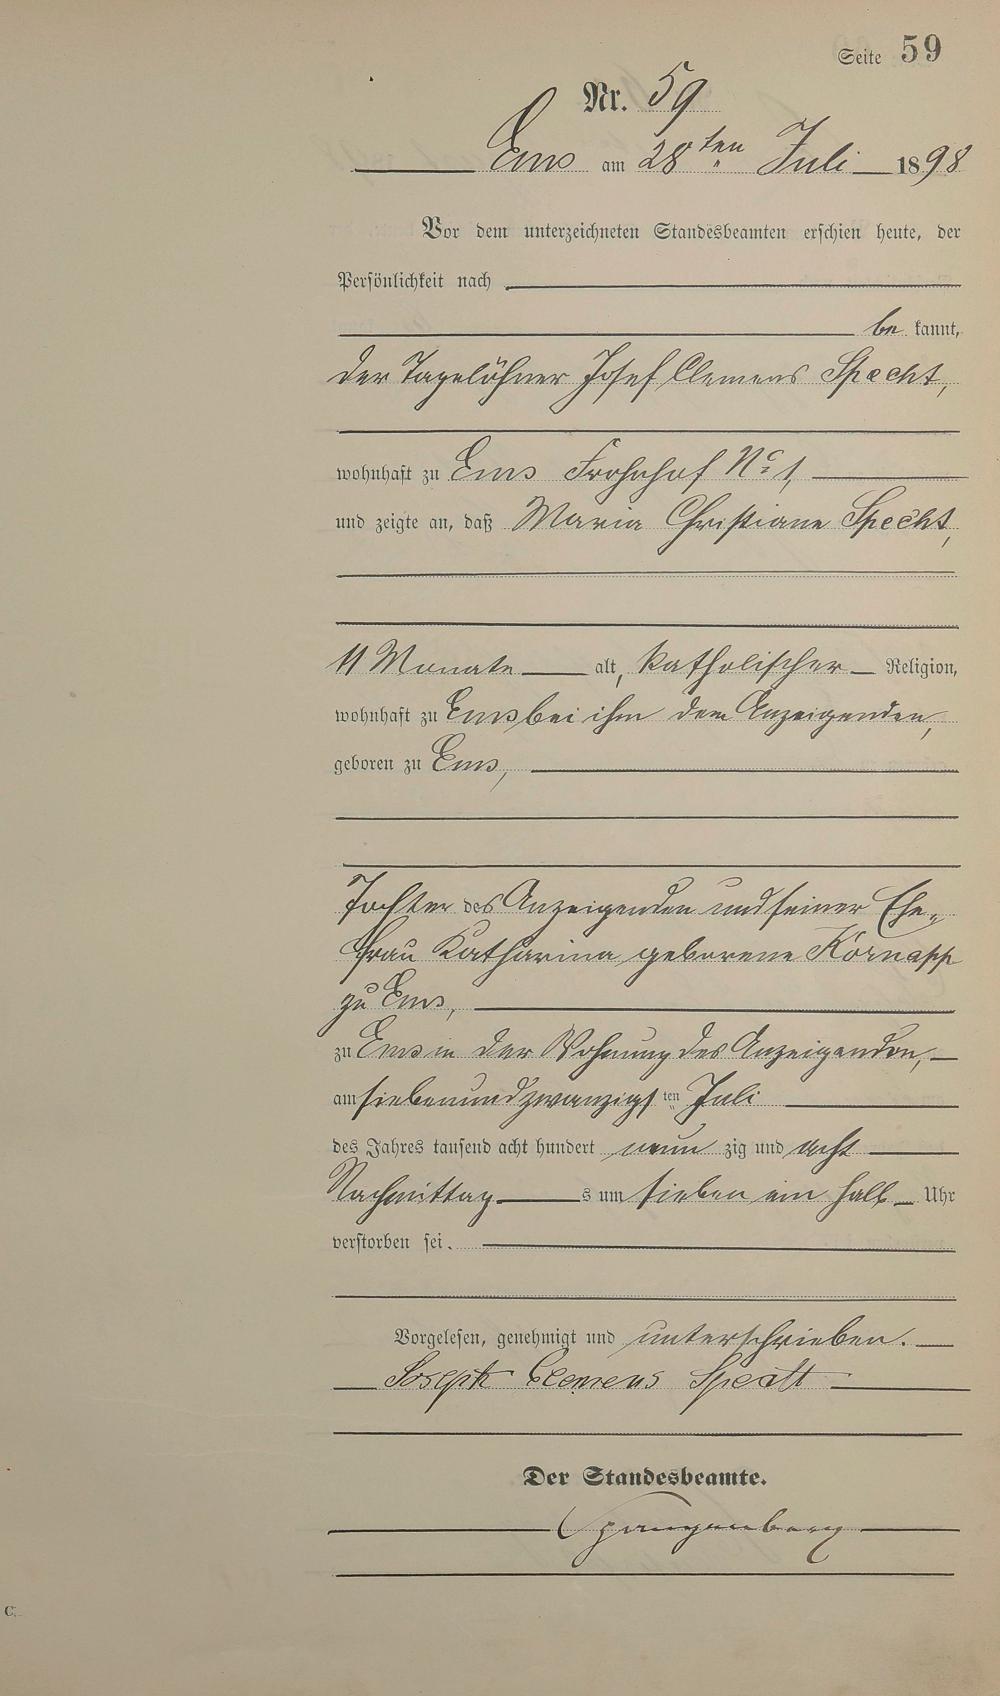 Seite 59
Nr. 59
Ems am 28ten Juli 1898
Vor dem unterzeichneten Standesbeamten erschien heute, der
Persönlichkeit nach
be kannt,
der Tagelöhner Josef Clemens Specht,
wohnhaft zu Ems Frohnhof No 1,
und zeigte an, daß Maria Christiane Specht,
11 Monate alt, katholischer Religion,
wohnhaft zu Ems bei ihm dem Anzeigenden,
geboren zu Ems,
Tochter des Anzeigenden und seiner Ehe-
frau Katharina geborene
zu Ems,
zu Ems in der Wohnung des Anzeigenden,
am siebenundzwanzigsten Juli
des Jahres tausend acht hundert neun zig und acht
Nachmittag s um sieben ein halb Uhr
verstorben sei.
Vorgelesen, genehmigt und unterschrieben.
Joseph Clemens Specht
Der Standesbeamte.
C.